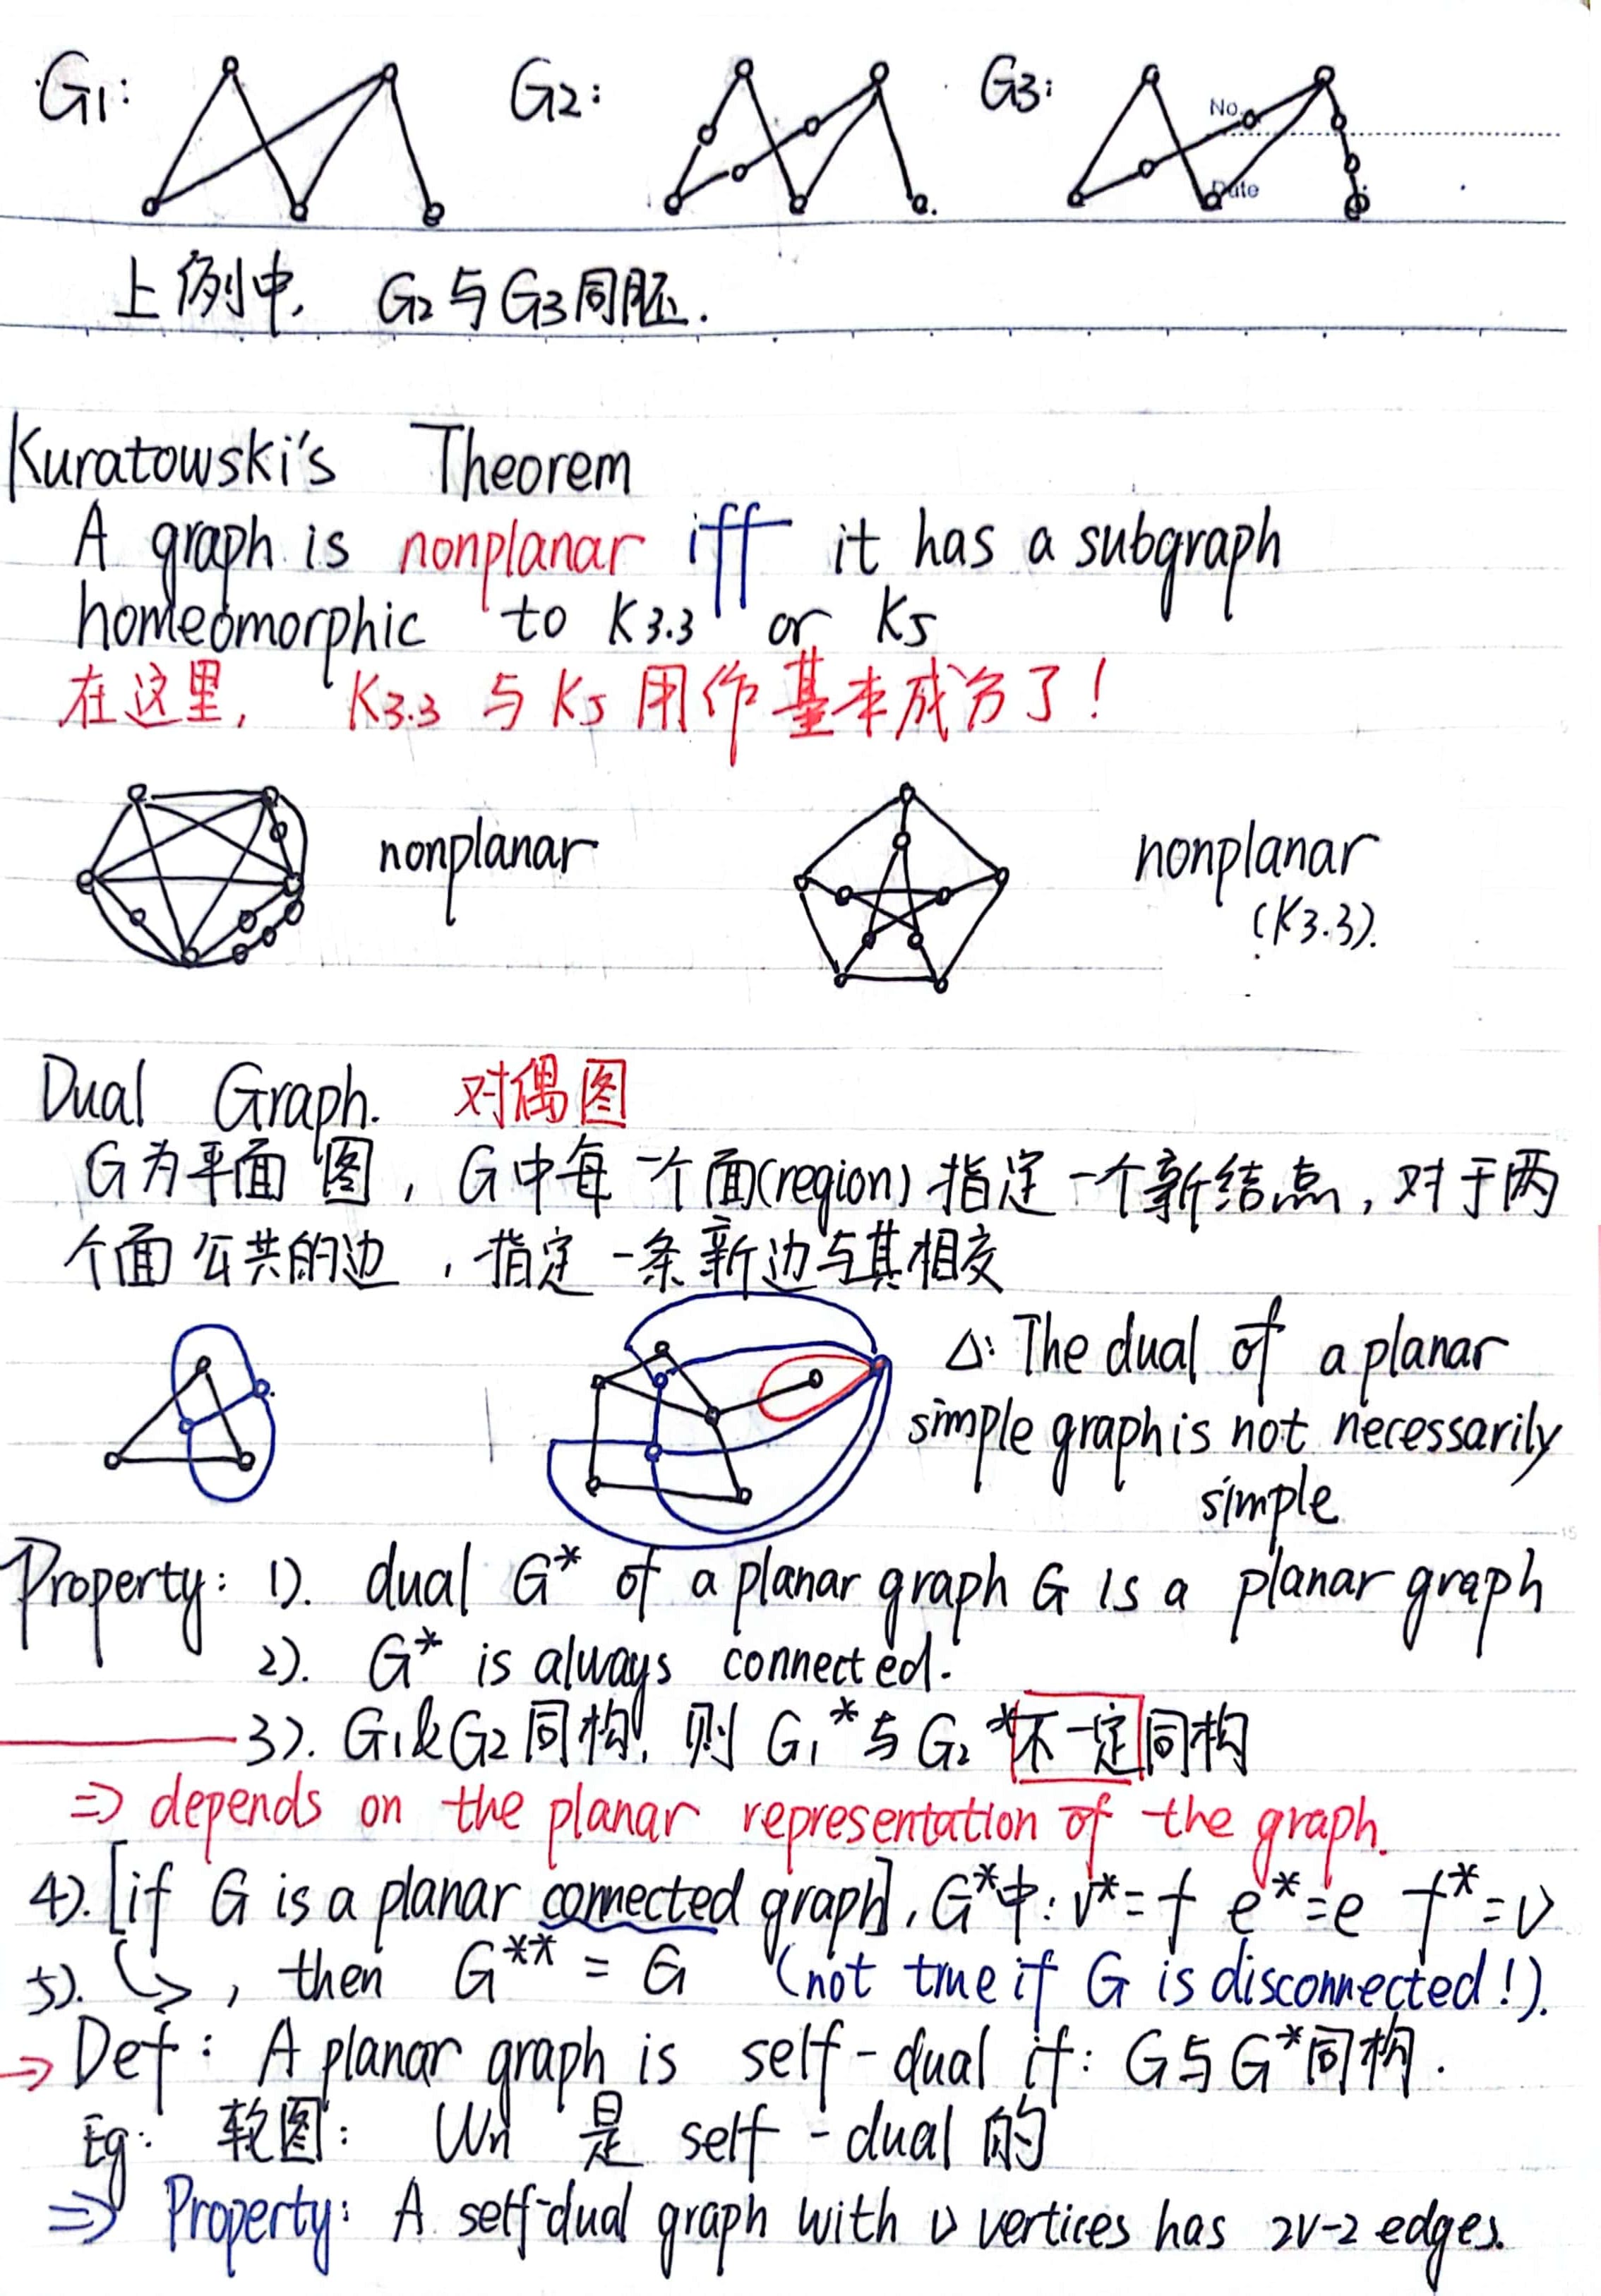 G1:
G2:
G3:
No.
Date
上例中, G2与G3同胚.
Kuratowski's Theorem
A graph is nonplanar iff it has a subgraph
homeomorphic to K3.3 or K5
在这里, K3.3 与 K5 用作基本成分了!
nonplanar
nonplanar
(K3.3).
Dual Graph. 对偶图
G为平面图, G中每一个面(region)指定一个新结点, 对于两
个面公共的边, 指定一条新边与其相交
Δ: The dual of a planar
simple graph is not necessarily
simple
Property: 1). dual G* of a planar graph G is a planar graph
2). G* is always connected.
3). G1&G2同构, 则 G1*与G2*不一定同构
⇒ depends on the planar representation of the graph.
4). [if G is a planar connected graph], G*中: v*=f e*=e f*=v
5). ↪, then G** = G (not true if G is disconnected!).
→ Def: A planar graph is self-dual if: G与G*同构.
Eg: 轮图: Wn 是 self-dual 的
⇒ Property: A self-dual graph with v vertices has 2v-2 edges.